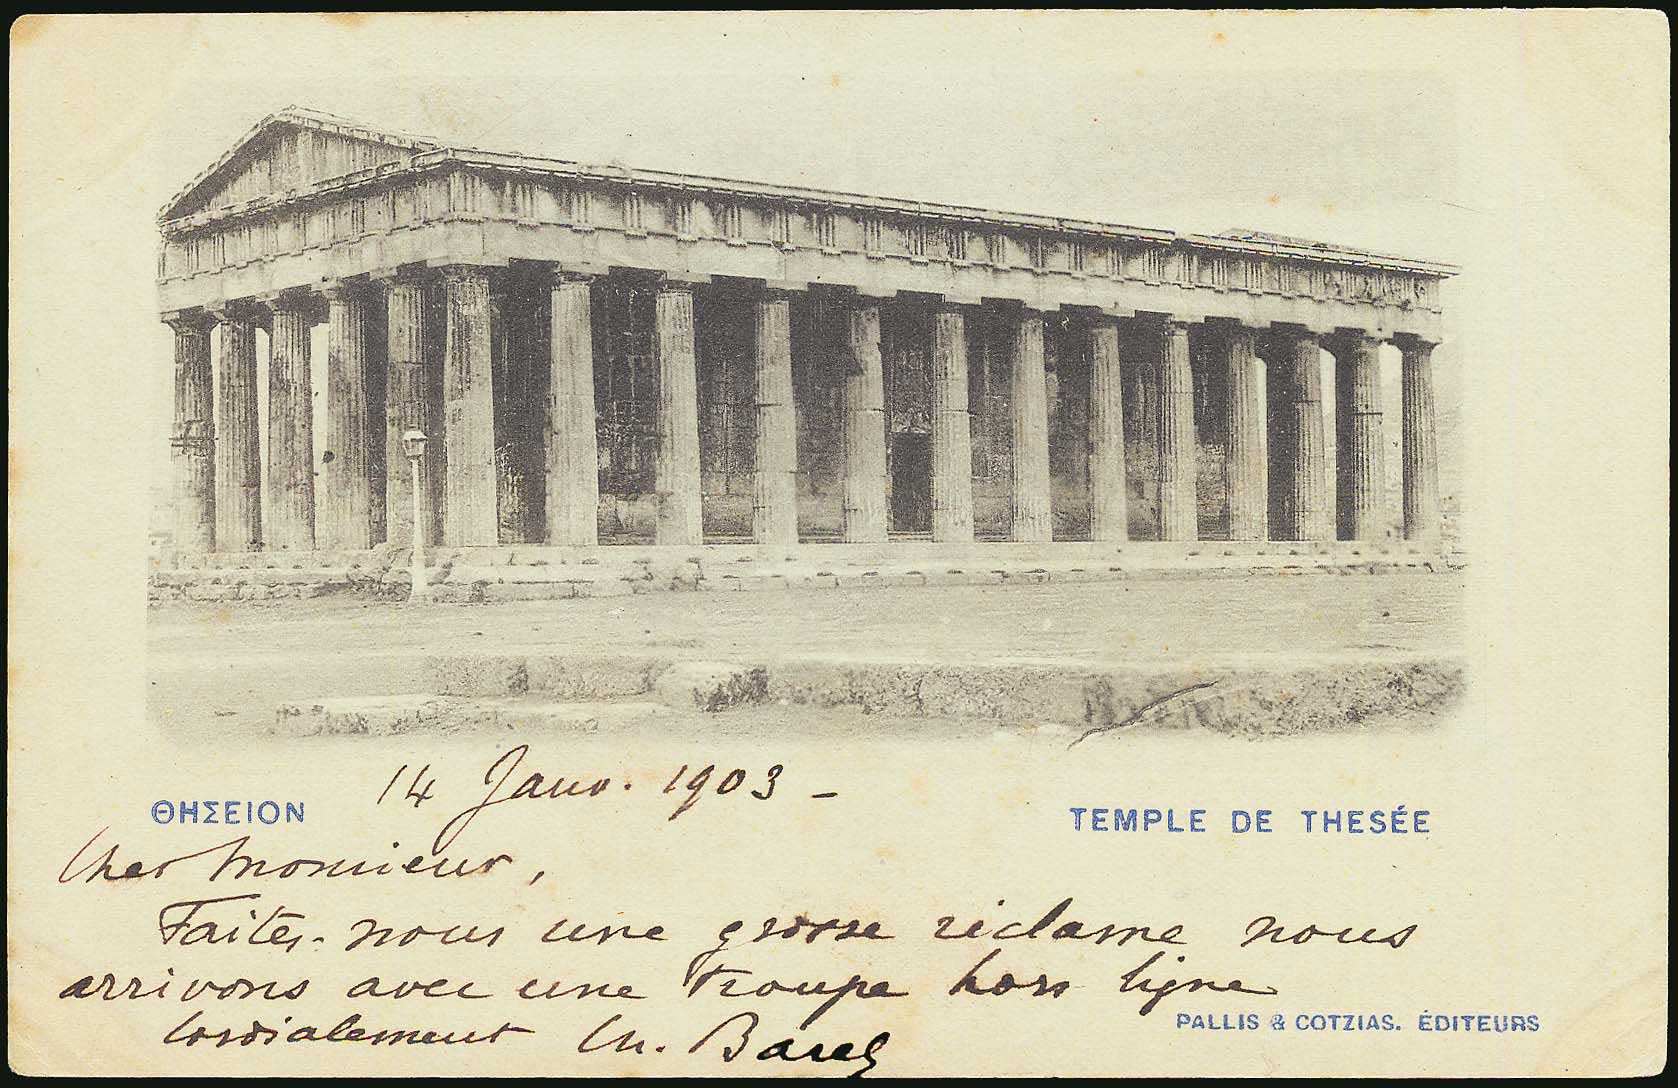 14 Janv. 1903 -
ΘΗΣΕΙΟΝ
TEMPLE DE THESÉE
Cher Monsieur,
Faites-nous une grosse réclame nous
arrivons avec une troupe hors ligne
Cordialement Ch.
PALLIS & COTZIAS. ÉDITEURS